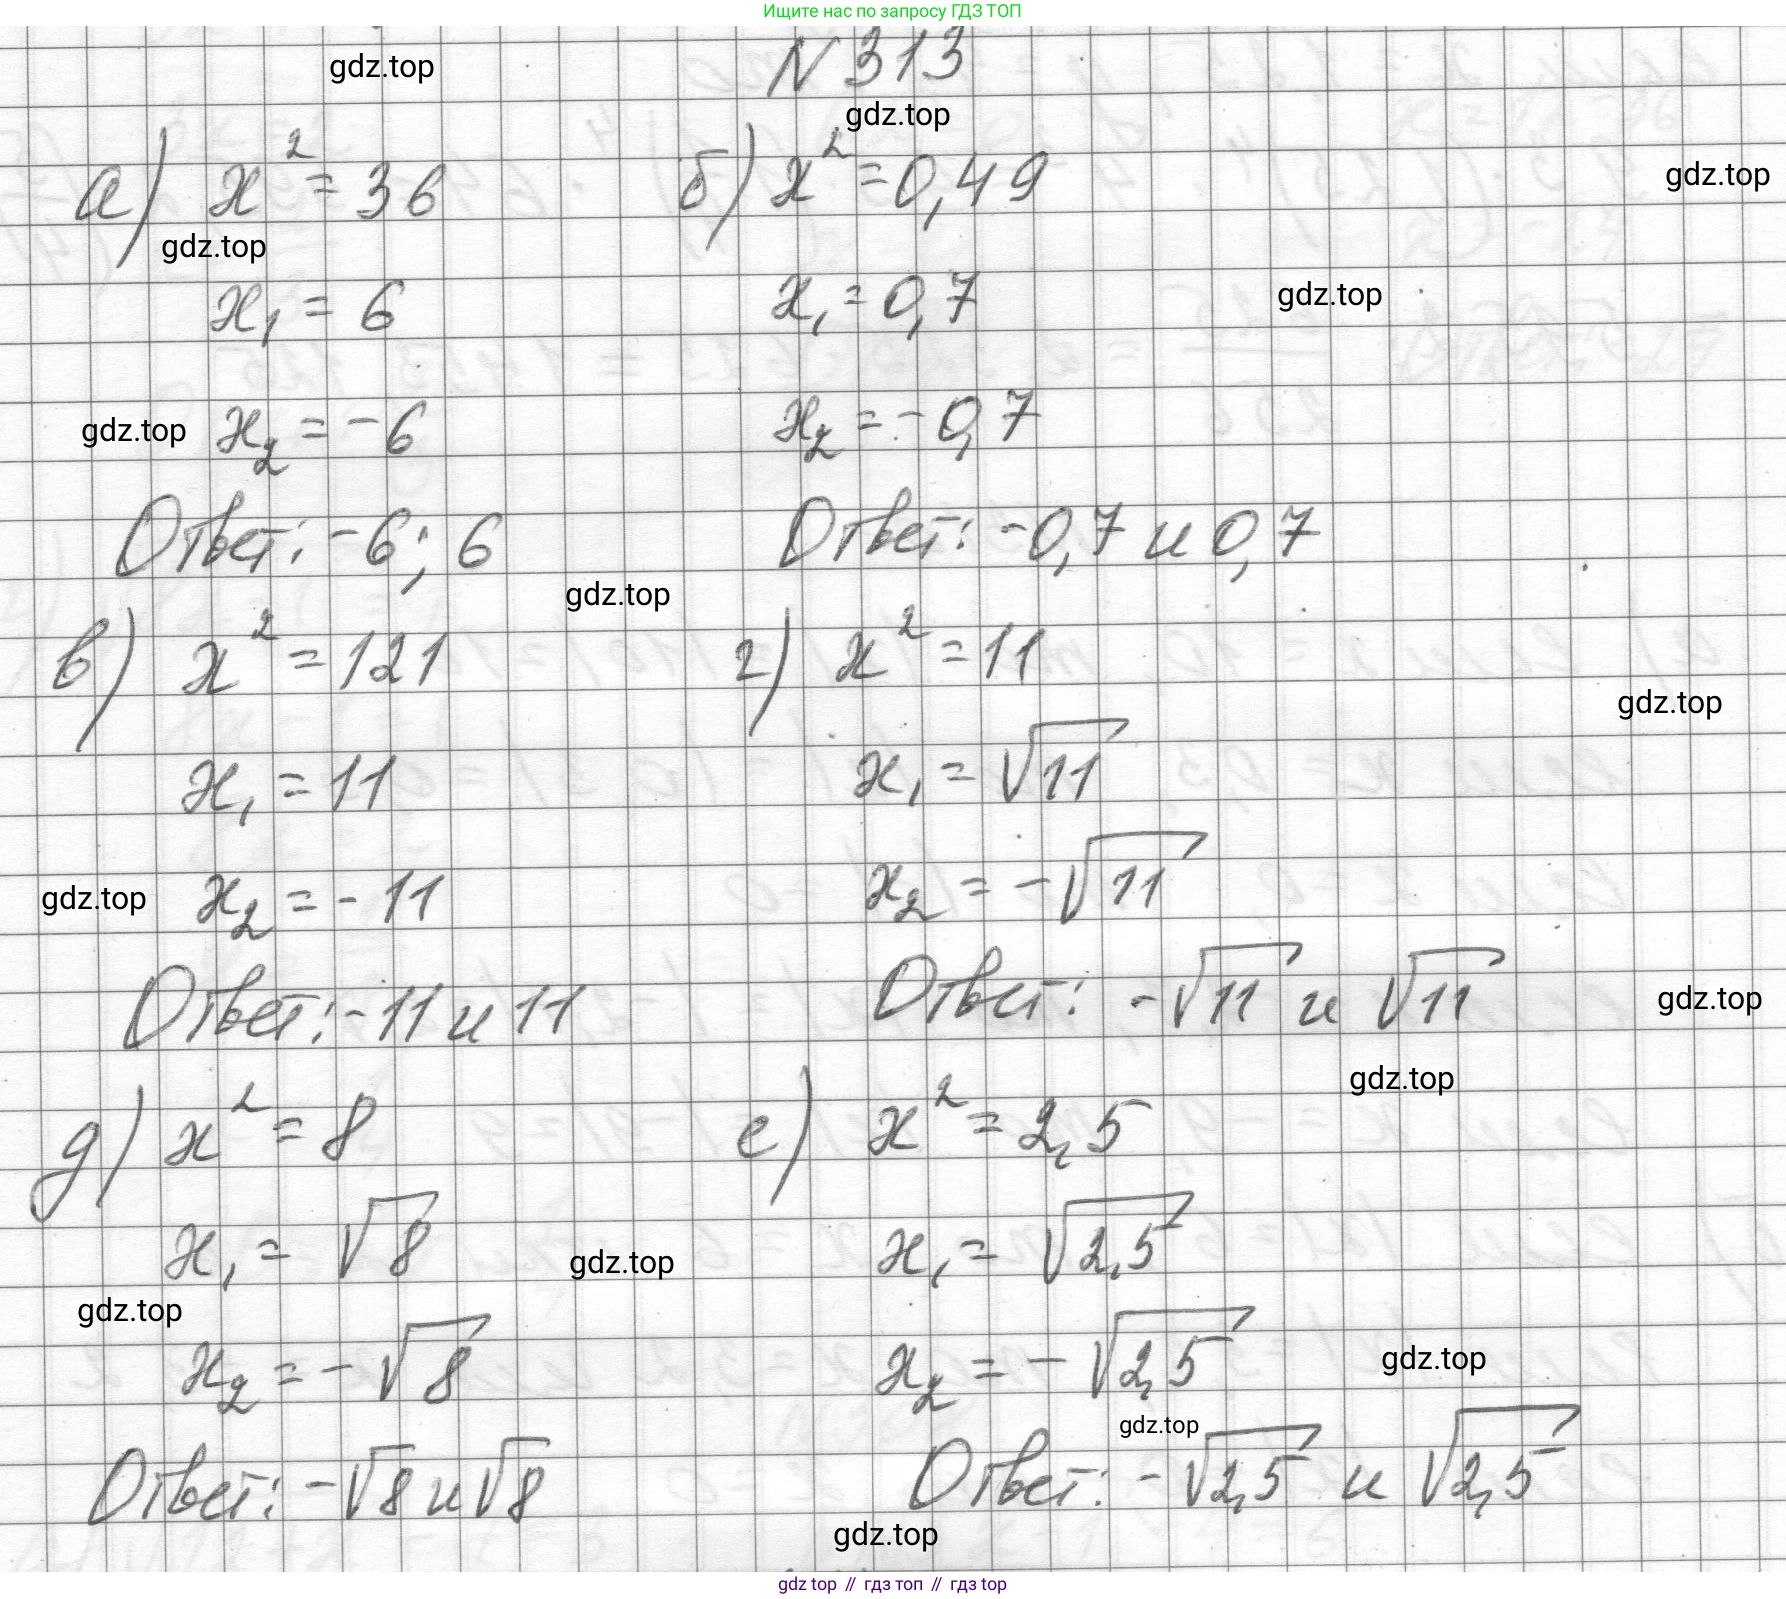 Ищите нас по запросу ГДЗ ТОП
N 313
gdz.top
gdz.top
а) x² = 36
б) x² = 0,49
gdz.top
gdz.top
x₁ = 6
x₁ = 0,7
gdz.top
gdz.top
x₂ = -6
x₂ = -0,7
Ответ: -6; 6
Ответ: -0,7 и 0,7
gdz.top
в) x² = 121
г) x² = 11
gdz.top
x₁ = 11
x₁ = √11
gdz.top
x₂ = -11
x₂ = -√11
Ответ: -11 и 11
Ответ: -√11 и √11
gdz.top
gdz.top
д) x² = 8
е) x² = 2,5
x₁ = √8
gdz.top
x₁ = √2,5
gdz.top
x₂ = -√8
x₂ = -√2,5
gdz.top
gdz.top
Ответ: -√8 и √8
Ответ: -√2,5 и √2,5
gdz.top
gdz top // гдз топ // гдз top